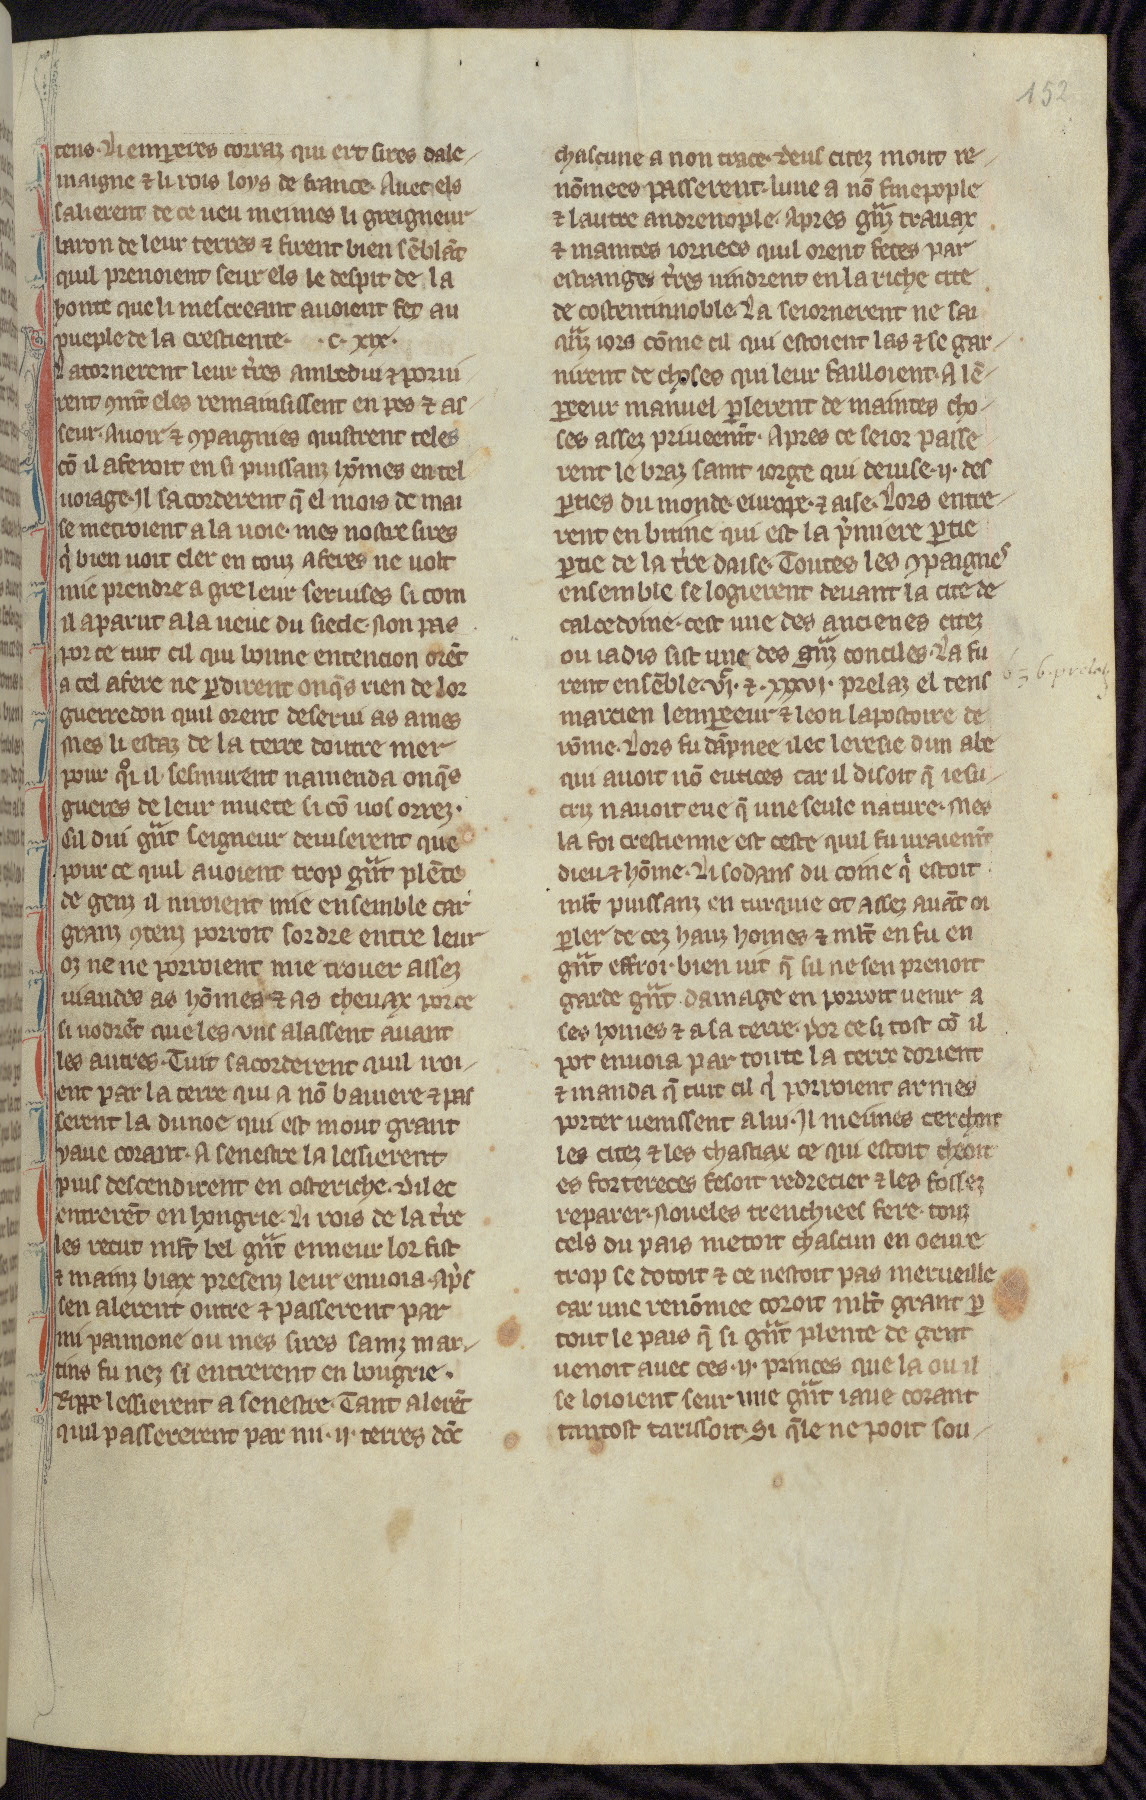 152
tens. Li emꝑeres corraz qui ert sires dale-
maigne ⁊ li rois loys de france. Auec els
salierent de ce ueu meimes li greigneur
baron de leur terres ⁊ firent bien sẽblãt
quil prenoient seur els le despit de la
honte que li mescreant auoient fet au
pueple de la crestiente. .c. xix.
atornerent leur t̾res ambedui ⁊ porui
rent ꝯm̃t eles remainsissent en pes ⁊ as-
seur. Auoir ⁊ ꝯpaignies quistrent teles
cõ il aferoit en si puissanz hõmes en tel
uoiage. Il sacorderent q̃ el mois de mai
se metroient a la uoie. mes nostre sires
qͥ bien uoit cler en touz aferes ne uolt
mie prendre a gre leur seruises si com
il aparut a la ueue du siecle. Non pas
por ce tuit cil qui bonne entencion orẽt
a cel afere ne ꝑdirent onq̃s rien de lor
guerredon quil orent deserui as ames
Mes li estaz de la terre doutre mer
pour qͦi il sesmurent namenda onq̃s
gueres de leur muete si cõ uos orrez.
Cil dui gͣnt seigneur deuiserent que
pour ce quil auoient trop gͣnt plẽte
de genz il niroient mie ensemble car
granz ꝯtenz porroit sordre entre leur
oz ne ne porroient mie trouer assez
uiandes as hõmes ⁊ as cheuax por ce
si uodrẽt que les uns alassent auant
les autres. Tuit sacorderent quil iroi-
ent par la terre qui a nõ bauiere ⁊ pas
serent la dunoe qui est mout grant
yaue corant. A senestre la lessierent
puis descendirent en osteriche. Dilec
entrerẽt en hongrie. Li rois de la t̾re
les recut ml̃t bel gͣnt enneur lor fist
⁊ mainz biax presenz leur enuoia. Ap̾s
sen alerent outre ⁊ passerent par
mi pannone ou mes sires sainz mar-
tins fu nez si entrerent en bougrie.
Rippe lessierent a senestre. Tant alerẽt
quil passererent par mi .ii. terres dõt
chascune a non trace. Deus citez mout re-
nõmees passerent. lune a nõ finepople
⁊ lautre andrenople. Apres gͣnz trauax
⁊ maintes iornees quil orent fetes par
estranges t̾res uindrent en la riche cite
de costentinnoble. La seiornerent ne sai
qͣnz iors cõme cil qui estoient las ⁊ se gar-
nirent de choses qui leur failloient. A lẽ-
ꝑreur manuel ꝑlerent de maintes cho-
ses assez priueem̃t. Apres ce seior passe
rent le braz saint iorge qui deuise .ii. des
ꝑties du monde. europe. ⁊ aise. Lors entre-
rent en bitine qui est la p̾miere ꝑtie
ꝑtie de la t̾re daise. Toutes les ꝯpaignes
ensemble se logierent deuant la cite de
calcedoine. cest une des ancienes citez
ou iadis fist une des gͣnz conciles. La fu
rent ensẽble .vi. ⁊ .xxxvi. prelaz el tens
marcien lempereeur ⁊ leon lapostoire de
rõme. Lors fu dãpnee ilec leresie dun abe
qui auoit nõ eutices car il disoit q̃ iesu-
criz nauoit eue q̃ une seule nature. Mes
la foi crestienne est ceste quil fu uraiem̃t
dieu ⁊ hõme. Li sodans du coine qͥ estoit
ml̃t puissanz en turquie ot assez auãt oi
ꝑler de cez hauz homes ⁊ ml̃t en fu en
gͣnt effroi. bien uit q̃ sil ne sen prenoit
garde gͣnt damage en porroit uenir a
ses homes ⁊ a sa terre. por ce si tost cõ il
pot enuoia par toute la terre dorient
⁊ manda q̃ tuit cil qͥ porroient armes
porter uenissent a lui. Il meimes cerchoit
les citez ⁊ les chastiax ce qui estoit cheoit
es fortereces fesoit redrecier ⁊ les fossez
reparer. Noueles trenchiees fere. touz
cels du pais metoit chascun en oeure
trop se dotoit ⁊ ce nestoit pas merueille
car une renõmee coroit ml̃t grant ꝑ
tout le pais q̃ si gͣnt plente de gent
uenoit auec ces .ii. princes que la ou il
se loioient seur une gͣnt iaue corant
tantost tarissoit. Si q̃le ne pooit sou-